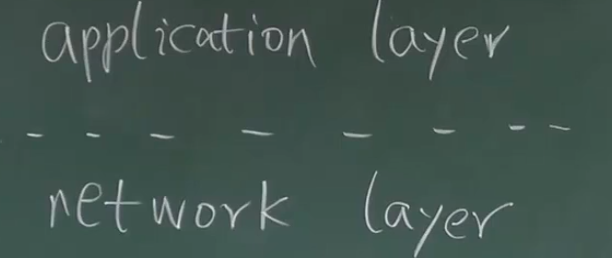 application layer
network layer